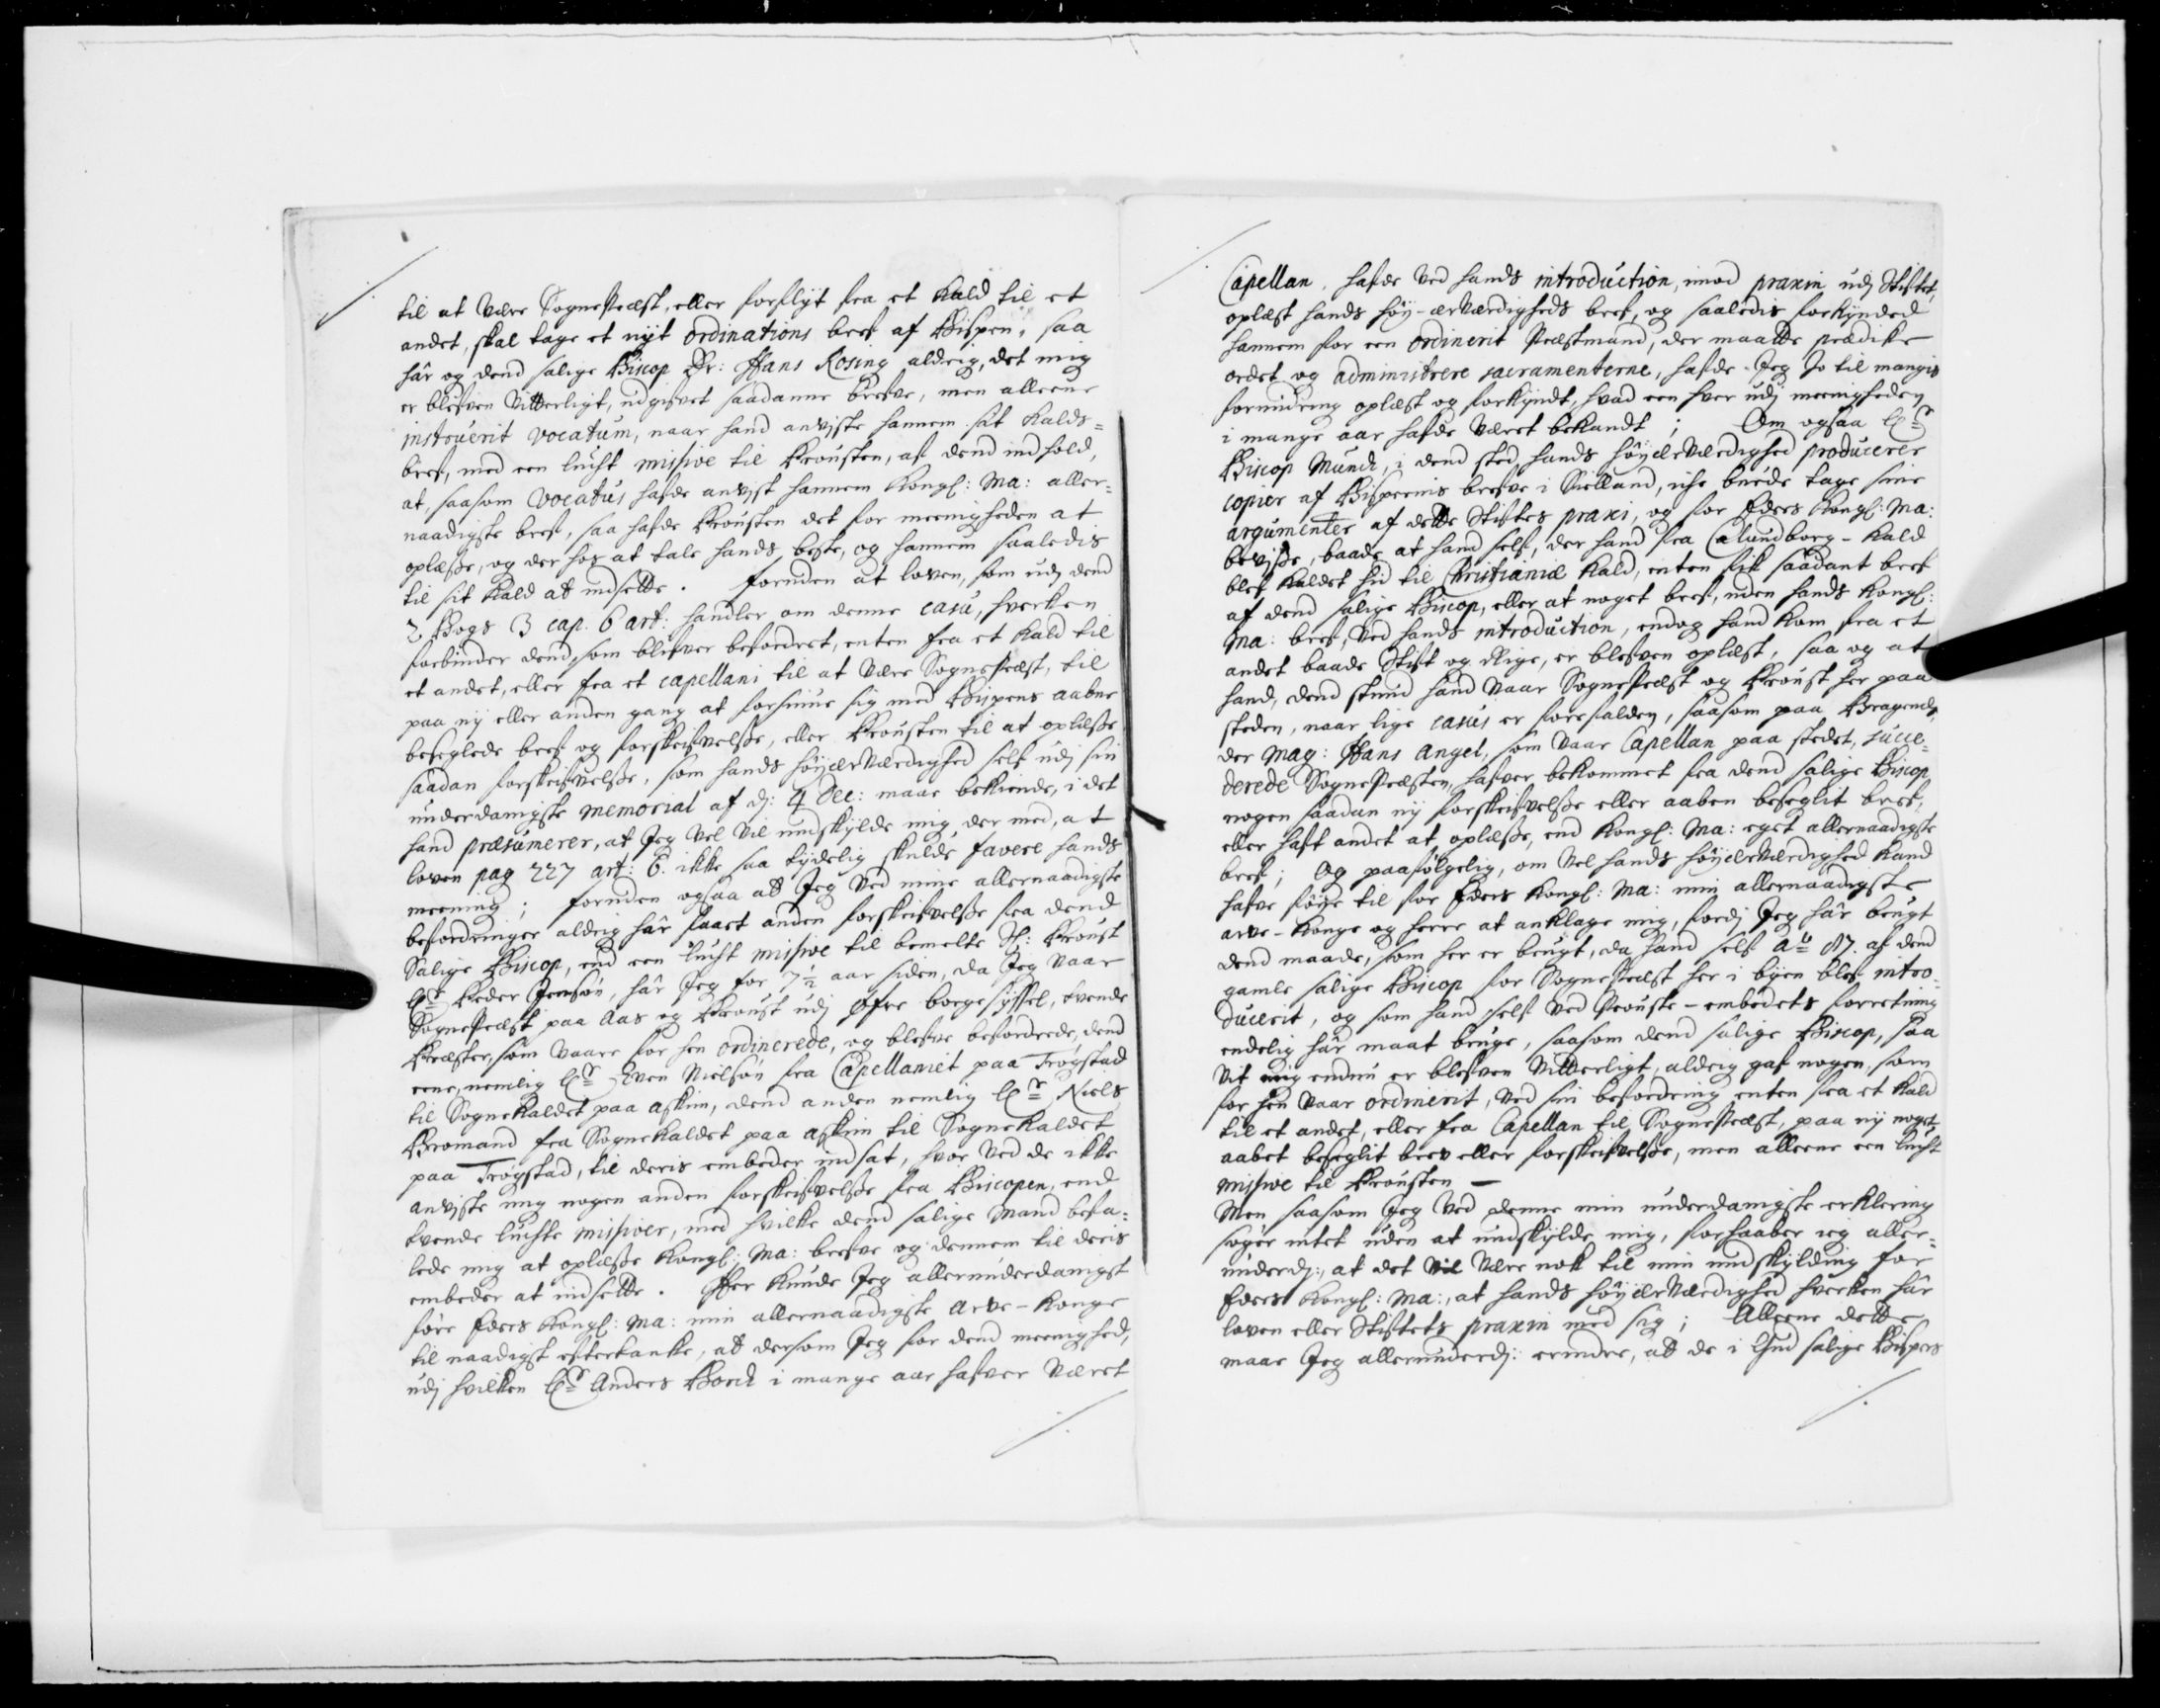 til at være Sognepræst, eller forflyt fra et Kald til et
andet, skal tage et nyt ordinations bref af Bispen, saa
hâr og dend salige Biscop Dr: Hans Rosing aldrig, det mig
er blefven vitterligt, udgifvet saadanne brefve, men alleene
instruerit vocatum, naar hand anviste hannem sit Kalds=
bref, med een lucht missive til Prousten, af dend indhold,
at, saasom vocatus hafde anvist hannem Kongl: Ma: aller=
naadigste bref, saa hafde Prousten det for meenigheden at
oplæsse, og der hos at tale hands beste, og hannem saaledis
til sit Kald at indsette. foruden at loven, som udj dend
2 Bogs 3 cap. 6 art: handler om denne casu, hverken
forbinder dend, som blifver befordret, enten fra et Kald til
et andet, eller fra et capellani til at være Sognepræst, til
paa ny eller anden gang at forsiune sig med Bispens aabne
beseglede bref og forskrifvelsse, eller Prousten til at oplæsse
saadan forskrifvelsse, som hands höyærværdighed self udj sin
underdanigste memorial af dj: 4 Dec: maae bekiende, i det
hand præsumerer, at Jeg vel vil undskylde mig der med, at
loven pag 227 art: 6. ikke saa tydelig skulde favere hands
meening; foruden ogsaa at Jeg ved mine allernaadigste
befordringer aldrig hâr faaet anden forskrifvelsse fra dend
Salige Biscop, end een lucht missive til bemelte Sl: Proust
Hr Peder Jensøn, hâr Jeg for 7½ aar siden, da Jeg vaar
Sognepræst paa Aas og Proust udj øfre borgesyssel, tvende
Præster, som vaare for hen ordinerede, og blefve befordrede, dend
eene, nemlig Hr Even Nielsøn fra Capellaniet paa Trøgstad
til Sognekaldet paa askim, dend anden nemlig Hr Niels
Bromand fra Sognekaldet paa askim til Sognekaldet
paa Trøgstad, til deris embeder indsat, hvor ved de ikke
anviste mig nogen anden forskrifvelsse fra Biscopen, end
tvende luchte missiver, med hvilke dend salige Mand befa=
lede mig at oplæsse Kongl: Ma: brefve og dennem til deris
embeder at indsette. Her kunde Jeg allerunderdanigst
føre Eders Kongl: Ma: min allernaadigste Arve-Konge
til naadigst eftertanke, at dersom Jeg for dend meenighed,
udj hvilken Hr Anders Borch i mange aar hafver været
Capellan, hafde ved hands introduction, imod praxin udj Stiftet,
oplæst hands höy-ærværdigheds bref, og saaledis forkynded
hannem for een ordinerit Præstmand, der maatte prædike
ordet og administrere sacramenterne, hafde Jeg Jo til mangis
forundring oplæst og forkyndt, hvad een hver udj meenigheden
i mange aar hafde været bekandt; Om ogsaa Hr
Biscop Munch, i dend sted hands höyærværdighed producerer
copier af Bispernis brefve i Sielland, iche burde tage sine
argumenter af dette Stiftes praxi, og for Eders Kongl: Ma:
bevisse, baade at hand self, der hand fra Calundborg-Kald
blef kaldet hid til Christianiæ Kald, enten fik saadant bref
af dend salige Biscop, eller at noget bref, uden hands Kongl:
Ma: bref, ved hands introduction, endog hand kom fra et
andet baade Stift og Rige, er blefven oplæst, saa og at
hand, dend stund hand vaar Sognepræst og Proust her paa
steden, naar lige casus er forefalden, saasom paa Bragenes,
der Mag: Hans Angel, som vaar Capellan paa stedet, succe=
derede Sognepræsten, hafver bekommet fra dend salige Biscop
nogen saadan ny forskrifvelsse eller aaben beseglit bref,
eller haft andet at oplæsse, end Kongl: Ma: eget allernaadigste
bref; Og paafölgelig, om vel hands höyærværdighed kand
hafve föye til for Eders Kongl: Ma: min allernaadigste
arve-Konge og herre at anklage mig, fordj Jeg hâr brugt
dend maade, som her er brugt, da hand self Ao 87. af dend
gamle salige Biscop for Sognepræst her i byen blef intro=
ducerit, og som hand self ved Prouste-embedets forretning
endelig hâr maat bruge, saasom dend salige Biscop, saa
vit mig endnu er blefven vitterligt, aldrig gaf nogen, som
for hen vaar ordinerit, ved sin befordring enten fra et Kald
til et andet, eller fra Capellan til Sognepræst, paa ny noget
aabet beseglit brev eller forskrifvelsse, men alleene een lucht
missive til Prousten —
Men saasom Jeg ved denne min underdanigste erklering
søger intet uden at undskylde mig, forhaaber ieg aller=
underdj:, at det vil være nok til min undskylding for
Eders Kongl: Ma:, at hands höyærværdighed hverken hâr
loven eller Stiftets praxin med sig; Alleene dette
maae Jeg allerunderdj: erindre, at de i Gud salige Bispers